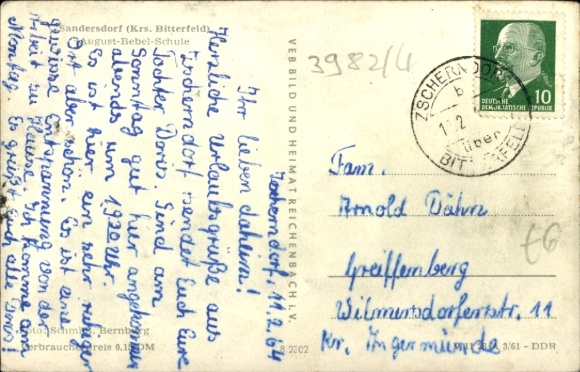 Sandersdorf (Krs. Bitterfeld)
August-Bebel-Schule
Zscherndorf, 11.2.64
Ihr lieben daheim!
Herzliche Urlaubsgrüße aus
Zscherndorf sendet Euch Eure
Tochter Doris. Sind am
Sonntag gut hier angekommen
abends um 1920 Uhr.
Es ist hier ein sehr ruhiger
Ort aber schön. Es ist eine
gewisse Entspannung von der
Arbeit zu Hause. Ich komme am
Montag. Es grüßt Euch alle Doris!
Foto: Schmidt, Bernburg
Verbraucherpreis 0,15 DM
VEB BILD UND HEIMAT REICHENBACH I. V.
3982/4
ZSCHERNDORF
b
über
BITTERFELD
DEUTSCHE
DEMOKRATISCHE REPUBLIK
10
Fam.
Arnold Dähn
Greiffenberg
Wilmersdorferstr. 11
Kr. Angermünde
€6
3/61 - DDR